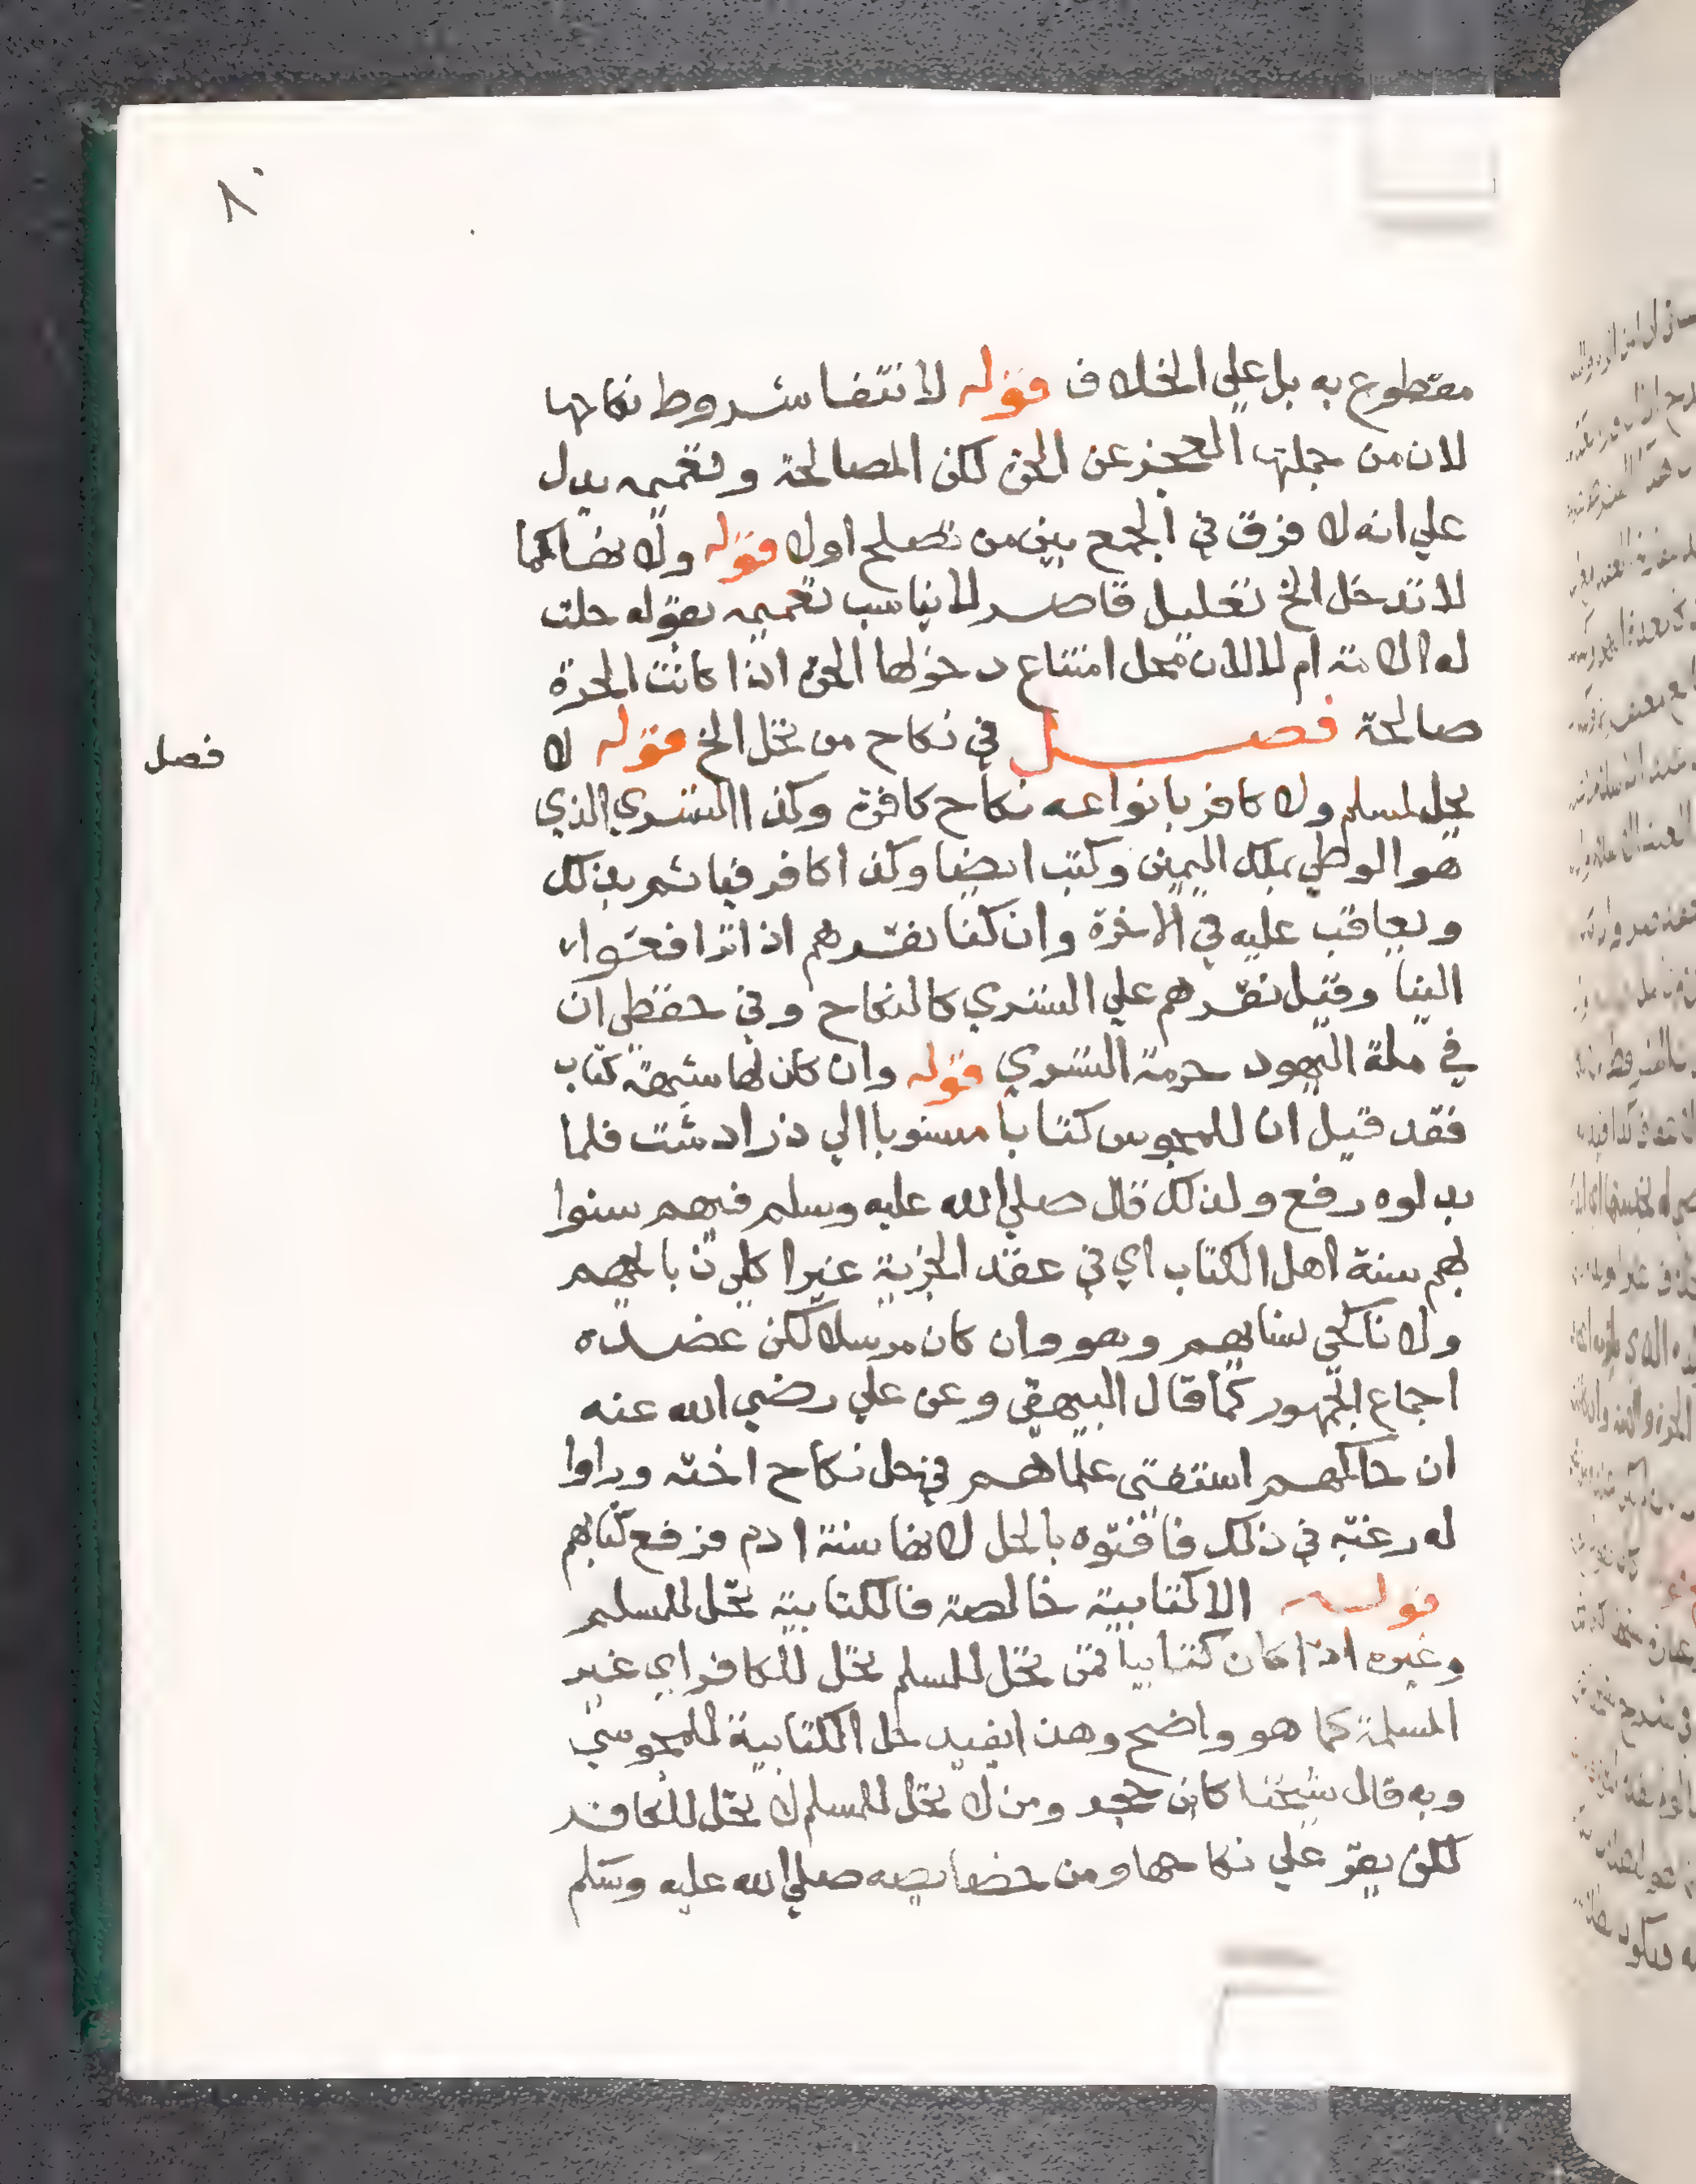 ٨٠
مقطوع به بل علي الخلاف قوله لانتفا شروط نكاحها
لان من جملتها العجز عن الحرة لكن المصالحة وتعميمه يدل
علي انه لا فرق في الجمع بين من تصلح اولا قوله ولانها كما
لا تدخل الخ تعليل قاصر لا يناسب تعميمه بقوله حلت
له الامة ام لا لان محل امتناع دخولها الحرة اذا كانت الحرة
صالحة فصل في نكاح من تحل الخ قوله لا
فصل
يحل لمسلم ولا كافر بانواعه نكاح كافرة وكذا التسري الذي
هو الوطي بملك اليمين وكتب ايضا وكذا كافر فياثم بذلك
ويعاقب عليه في الاخرة وان كنا نقرهم اذا ترافعوا
الينا وقيل نقرهم علي التسري كالنكاح وفي حفظي ان
في ملة اليهود حرمة التسري قوله وان كان لها شبهة كتاب
فقد قيل ان للمجوس كتابا منسوبا الي ذرادشت فلما
بدلوه رفع ولذلك قال صلي الله عليه وسلم فيهم سنوا
بهم سنة اهل الكتاب اي في عقد الجزية غير اكلي ذبايحهم
ولا ناكحي نسايهم وهو وان كان مرسلا لكن عضده
اجماع الجمهور كما قال البيهقي وعن علي رضي الله عنه
ان حاكمهم استفتى علماهم في حل نكاح اخته وراوا
له رغبة في ذلك فافتوه بالحل لانها سنة ادم فرفع كتابهم
قوله الا كتابية خالصة فالكتابية تحل للمسلم
وغيره اذا كان كتابيا فمن تحل للمسلم تحل للكافر اي غير
المسلمة كما هو واضح وهذا يفيد حل الكتابية للمجوسي
وبه قال شيخنا كابن حجر ومن لا تحل للمسلم لا تحل للكافر
لكن يقر علي نكاحها ومن خصايصه صلي الله عليه وسلم